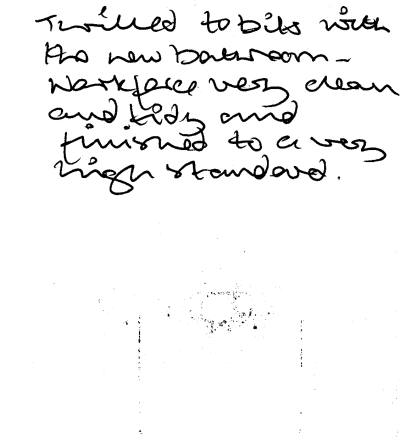 Thrilled to bits with
the new bathroom -
workforce very clean
and tidy and
finished to a very
high standard.